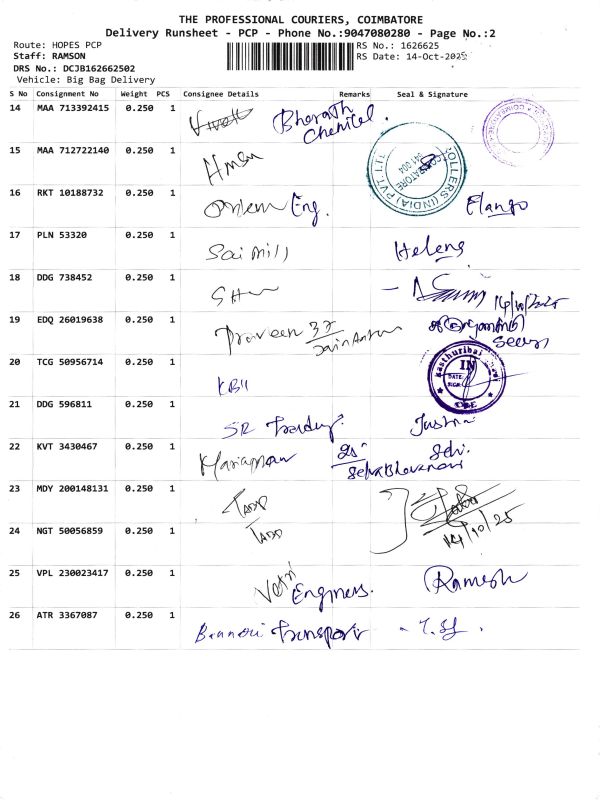 THE PROFESSIONAL COURIERS, COIMBATORE
Delivery Runsheet - PCP - Phone No.:9047080280 - Page No.:2
Route: HOPES PCP
RS No.: 1626625
Staff: RAMSON
RS Date: 14-Oct-2025
DRS No.: DCJB162662502
Vehicle: Big Bag Delivery
S No Consignment No Weight PCS Consignee Details Remarks Seal & Signature
14 MAA 713392415 0.250 1 Bharath
15 MAA 712722140 0.250 1
OLLERS (INDIA) PVT. LTD
COIMBATORE
641 004
16 RKT 10188732 0.250 1 Eng. Elango
17 PLN 53320 0.250 1 Sai Mill Helens
18 DDG 738452 0.250 1 14/10/2025
19 EDQ 26019638 0.250 1 Praveen 37
Jain
20 TCG 50956714 0.250 1 KBII
Kasthuribai
IN
DATE:
SIGN:
21 DDG 596811 0.250 1 SR Trading.
22 KVT 3430467 0.250 1 Mariappan Selvi
23 MDY 200148131 0.250 1
14/10/25
24 NGT 50056859 0.250 1
25 VPL 230023417 0.250 1 Vetri Engineers. Ramesh
26 ATR 3367087 0.250 1 Bannari Transport